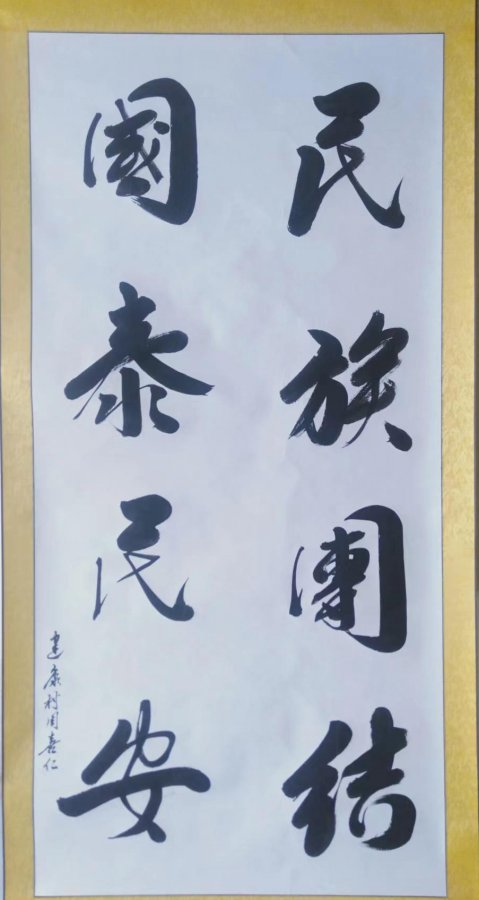 民族團結
國泰民安
建康村周喜仁